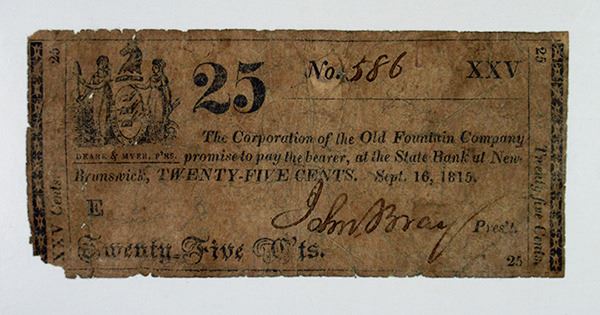 25
XXV Cents.
DEARE & MYER, P'RS.
25 No. 586 XXV
The Corporation of the Old Fountain Company
promise to pay the bearer, at the State Bank at New-
Brunswick, TWENTY-FIVE CENTS. Sept. 16, 1815.
E
John Bray Pres't.
Twenty-Five C'ts.
25
Twenty five Cents.
25